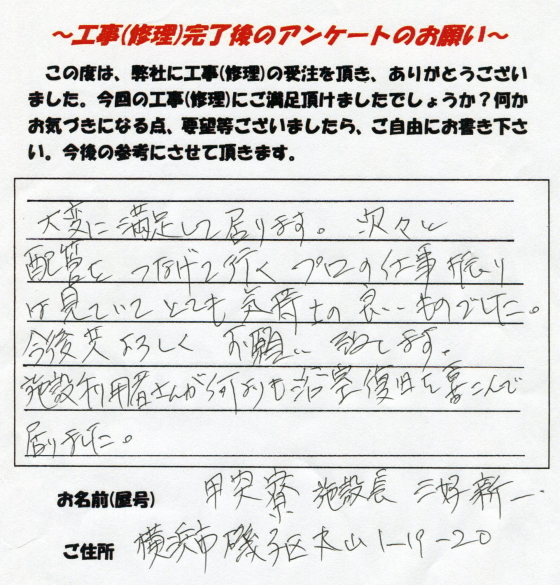 ～工事(修理)完了後のアンケートのお願い～
この度は、弊社に工事(修理)の受注を頂き、ありがとうござい
ました。今回の工事(修理)にご満足頂けましたでしょうか？何か
お気づきになる点、要望等ございましたら、ご自由にお書き下さ
い。今後の参考にさせて頂きます。
大変に満足して居ります。次々と
配管をつなげて行くプロの仕事振り
は見ていてとても気持ちの良いものでした。
今後共よろしくお願い致します。
施設利用者さんが何よりも浴室復旧を喜こんで
居りました。
お名前(屋号) 甲突寮 施設長 三好新一
ご住所 横浜市磯子区 1-19-20